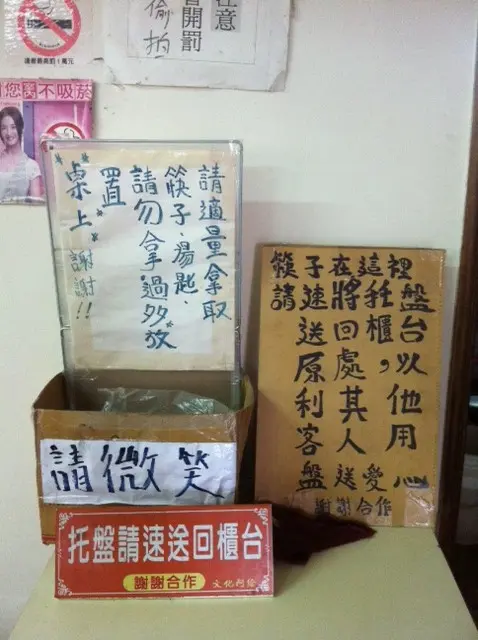 注意
開罰
偷拍
您不吸菸
請適量拿取
筷子、湯匙、
請勿拿過多放
置
桌上 謝謝!!
筷子在這裡
請速將托盤
送回櫃台
原處，以
利其他
客人用
盤送愛心
謝謝合作
請微笑
托盤請速送回櫃台
謝謝合作